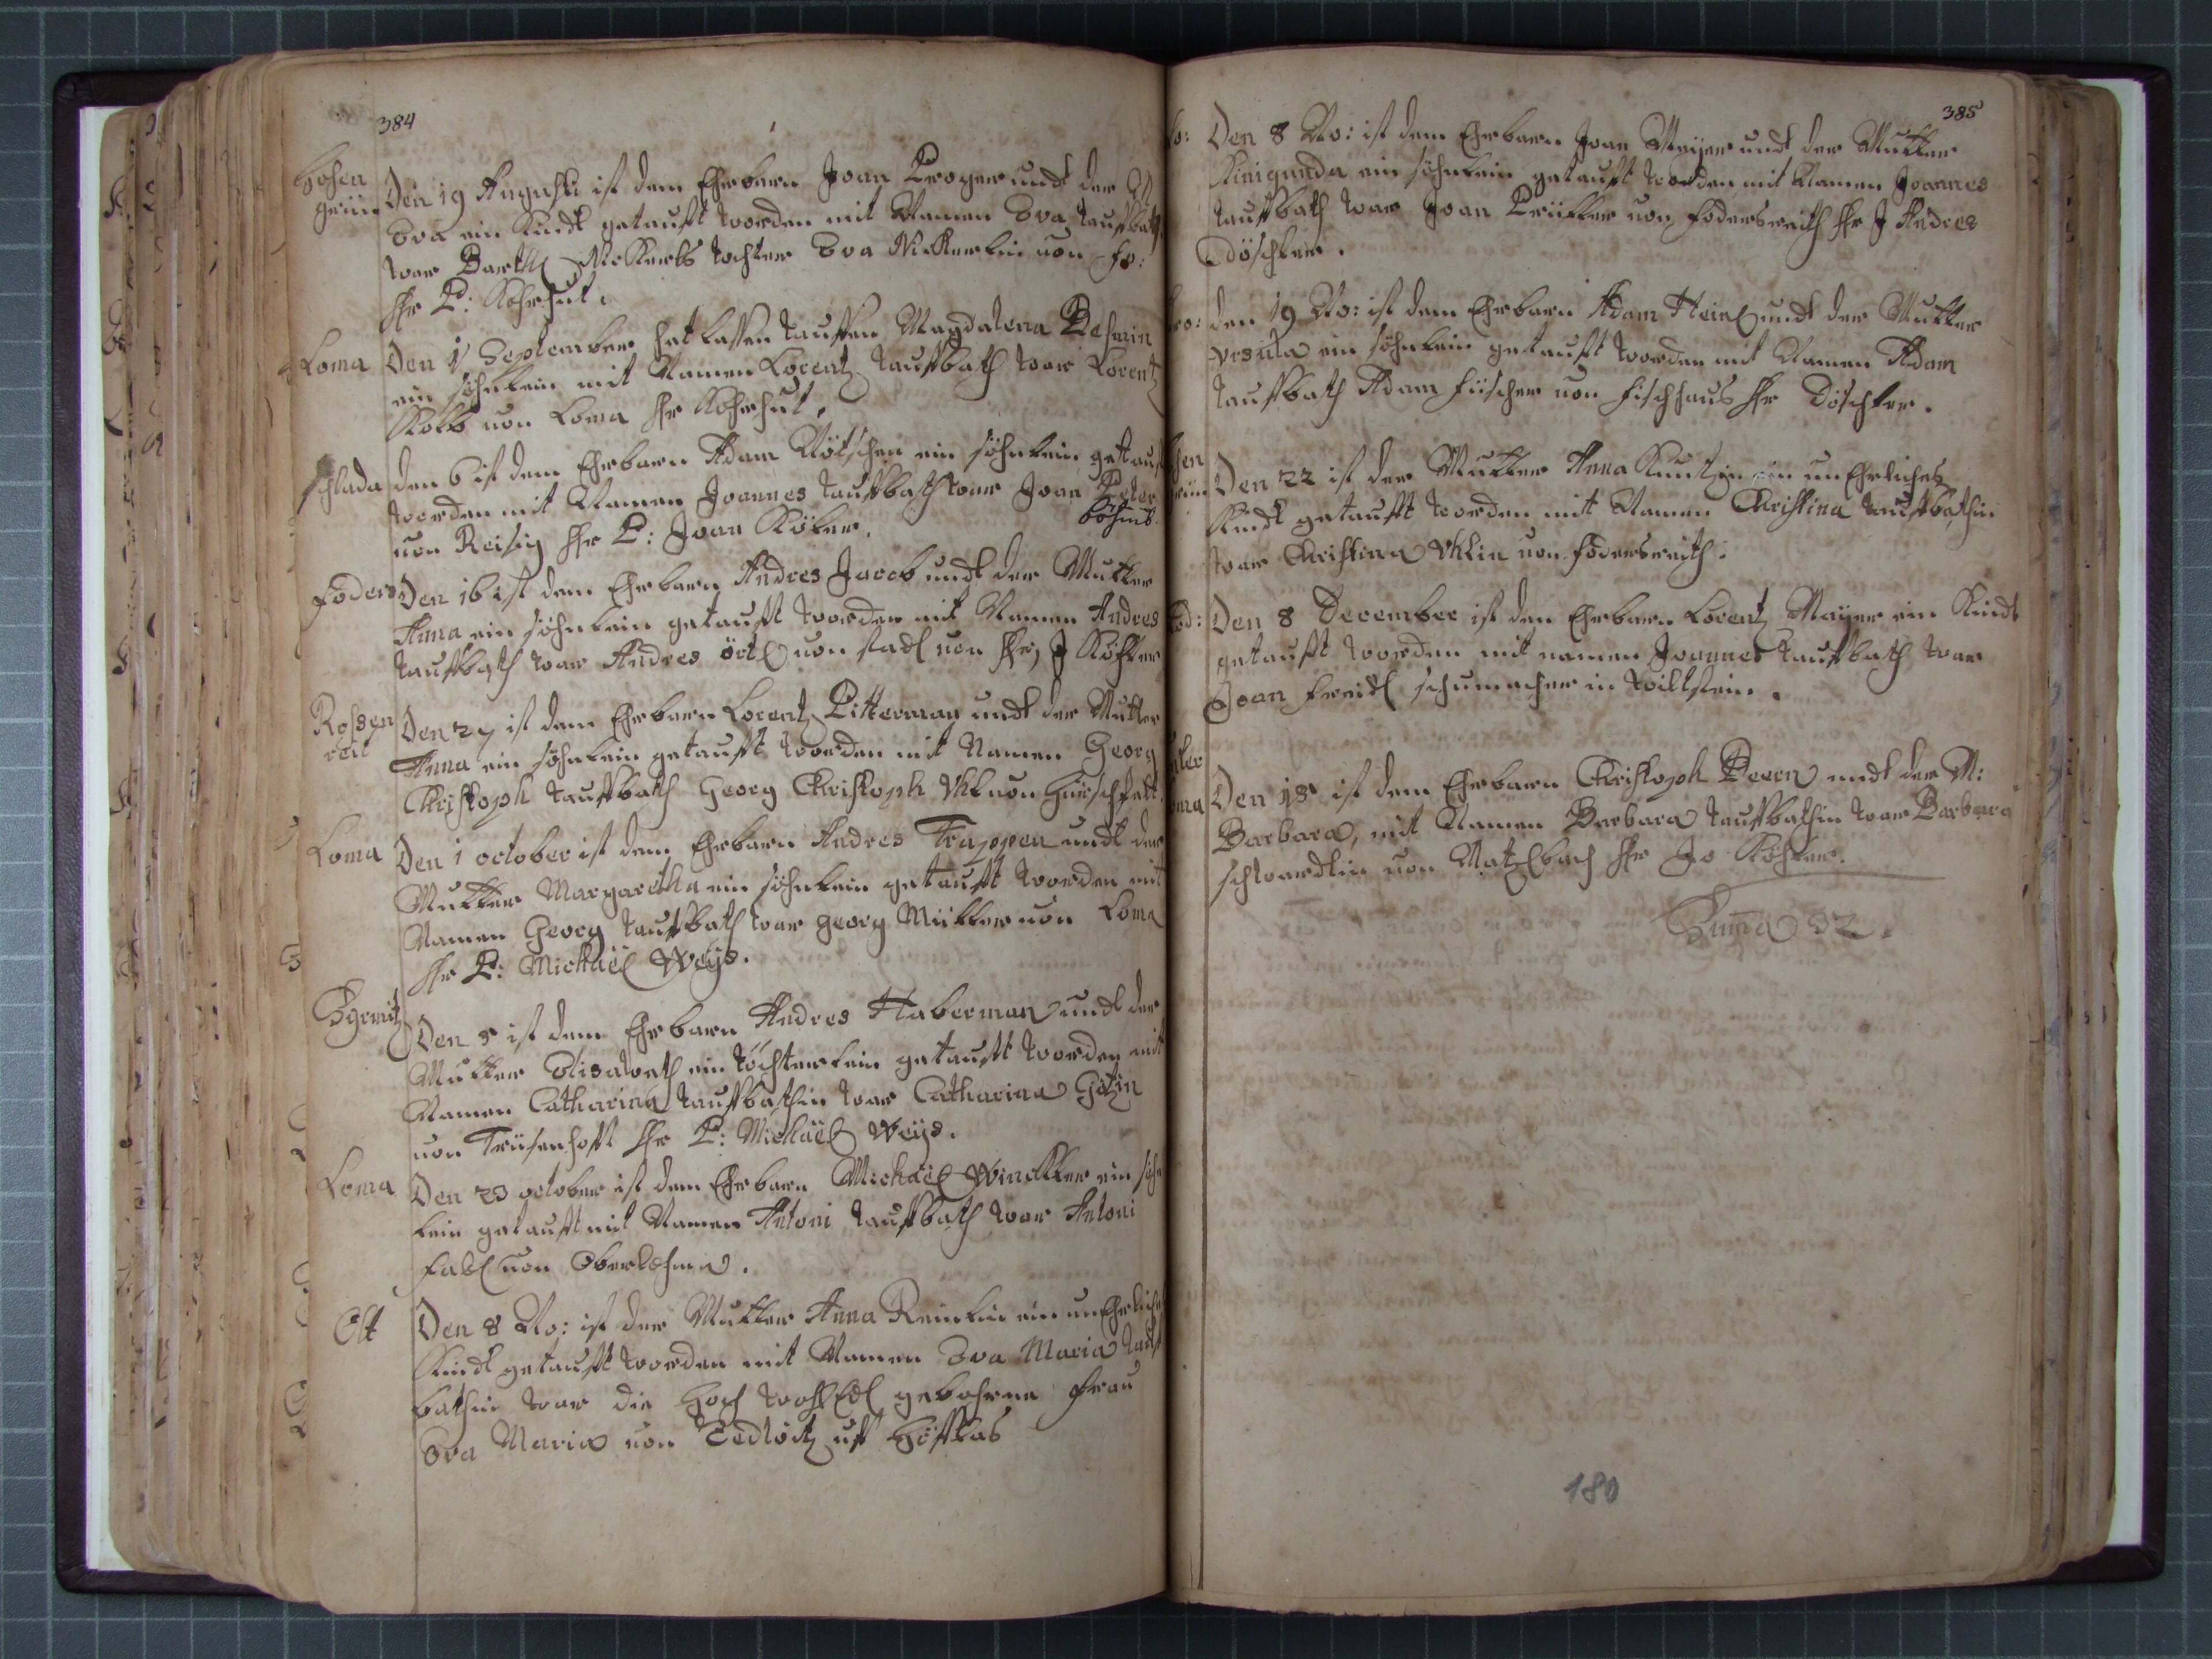 384
Hohen
grün
Den 19 Augusti ist dem Ehrbarn Joan Proger undt der M
Eva ein Kindt getaufft worden mit Namen Eva taufbath
war Barthl Nickerls tochter Eva Nickerlin von Ho:
Hr P: Kohrhut.
Loma
Den 1 September hat lassen tauffen Magdalena
ein söhnlein mit Namen Lorentz taufbath war Lorentz
Kolb von Loma Hr Kohrhut.
schlada
den 6 ist dem Ehrbarn Adam Nötschen ein söhnlein getauft
worden mit Namen Joannes taufbath war Joan Peter
Böhmb
von Reisig Hr P: Joan Köler.
Foders
Den 16 ist dem Ehrbarn Andres Jacob undt der Mutter
Anna ein söhnlein getaufft worden mit Namen Andres
taufbath war Andres örtl von stadl von Hr, J Köhler
Rossen
reit
Den 27 ist dem Ehrbarn Lorentz Pitterman undt der Mutter
Anna ein söhnlein getaufft worden mit Namen Georg
Christoph taufbath Georg Christoph Uhl von Hürschfelt
Loma
Den 1 october ist dem Ehrbarn Andres Trappen undt der
Mutter Margaretha ein söhnlein getaufft worden mit
Namen Georg taufbath war georg Müller von Loma
Hr P: Michaël Weys.
Syrmitz
Den 8 ist dem Ehrbarn Andres Haberman undt der
Mutter Elisabeth ein töchterlein getaufft worden mit
Namen Catharina taufbathin war Catharina Götzin
von Trüsenhoff Hr P: Michäel Weys.
Loma
Den 23 october ist dem Ehrbarn Michäel Winckler ein söhn
lein getaufft mit Namen Antoni taufbath war Antoni
Fabl von Oberlohma.
Ott
Den 8 No: ist der Mutter Anna Reimlin ein unEhrliches
Kindt getaufft worden mit Namen Eva Maria tauf
bathin war die Hoch wohlEdl gebohrne Frau
Eva Maria von Zedwitz uff Höfflas
385
Den 8 No: ist dem Ehrbarn Joan Mayer undt der Mutter
Kinigunda ein söhnlein getaufft worden mit Namen Joannes
taufbath war Joan Prüller von Fodersreith Hr J Andres
Döschler.
den 19 No: ist dem Ehrbarn Adam Heinl undt der Mutter
Ursula ein söhnlein getaufft worden mit Namen Adam
taufbath Adam Füscher von Fischhaus Hr Döschler.
Den 22 ist der Mutter Anna Kuntzin ein unEhrliches
Kindt getaufft worden mit Namen Christina taufbathin
war Christina Uhlin von Fodersreith.
Fod:
Den 8 December ist den Ehrbarn Lorentz Mayer ein Kindt
getaufft worden mit namen Joannes taufbath war
Joan Freidl schumacher in wiltstein.
Den 18 ist dem Ehrbarn Christoph Beern undt der M:
Barbara, mit Namen Barbara taufbathin war Barbara
schwardlin von Matzlbach Hr Jo Köhler.
Suma 32.
180